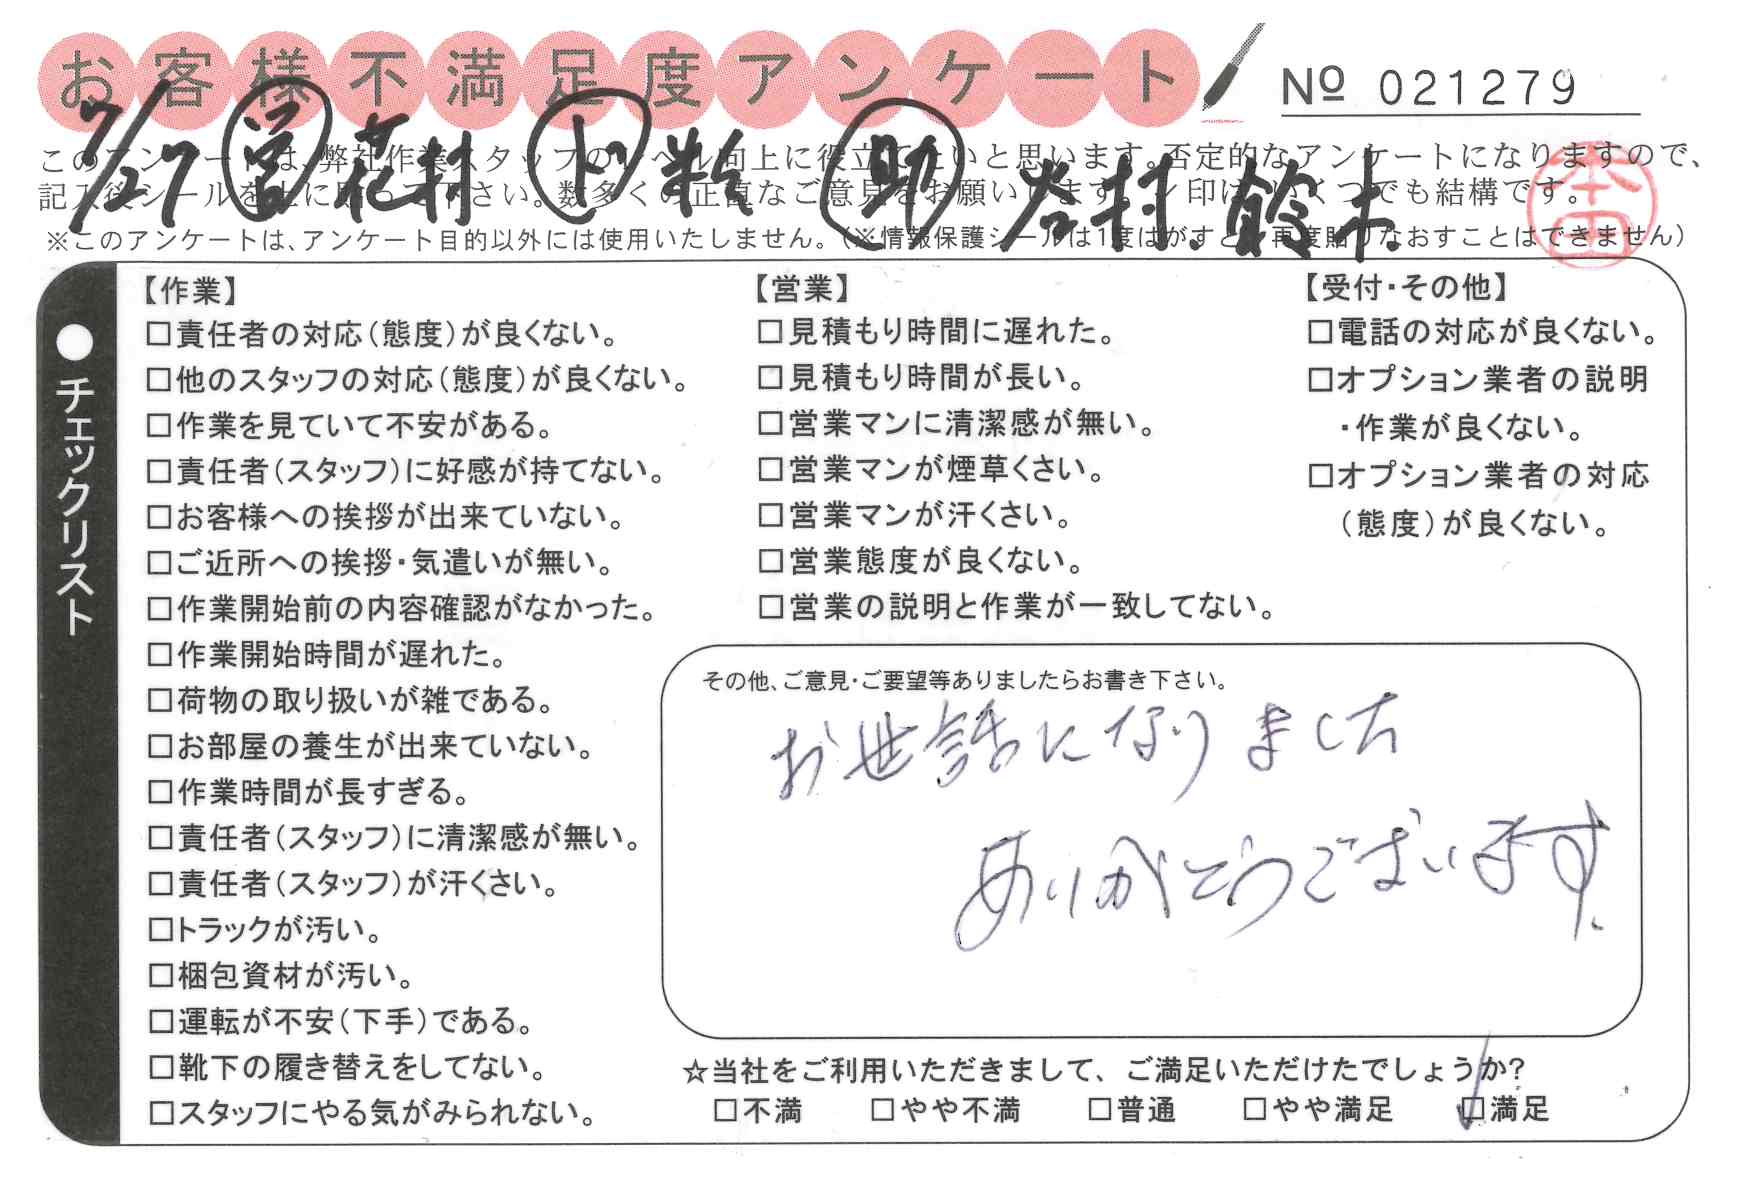 お客様不満足度アンケート
№ 021279
7/27 営 花村 ド 粕 助 岩村. 鈴木.
このアンケートは、弊社作業スタッフのレベル向上に役立てたいと思います。否定的なアンケートになりますので、
記入後シールを上に貼って下さい。数多くの正直なご意見をお願いします。レ印は、いくつでも結構です。
本田
※このアンケートは、アンケート目的以外には使用いたしません。(※情報保護シールは1度はがすと、再度貼りなおすことはできません)
●チェックリスト
【作業】
□責任者の対応(態度)が良くない。
□他のスタッフの対応(態度)が良くない。
□作業を見ていて不安がある。
□責任者(スタッフ)に好感が持てない。
□お客様への挨拶が出来ていない。
□ご近所への挨拶・気遣いが無い。
□作業開始前の内容確認がなかった。
□作業開始時間が遅れた。
□荷物の取り扱いが雑である。
□お部屋の養生が出来ていない。
□作業時間が長すぎる。
□責任者(スタッフ)に清潔感が無い。
□責任者(スタッフ)が汗くさい。
□トラックが汚い。
□梱包資材が汚い。
□運転が不安(下手)である。
□靴下の履き替えをしてない。
□スタッフにやる気がみられない。
【営業】
□見積もり時間に遅れた。
□見積もり時間が長い。
□営業マンに清潔感が無い。
□営業マンが煙草くさい。
□営業マンが汗くさい。
□営業態度が良くない。
□営業の説明と作業が一致してない。
【受付・その他】
□電話の対応が良くない。
□オプション業者の説明
・作業が良くない。
□オプション業者の対応
(態度)が良くない。
その他、ご意見・ご要望等ありましたらお書き下さい。
お世話になりました
ありがとうございます.
☆当社をご利用いただきまして、ご満足いただけたでしょうか?
□不満 □やや不満 □普通 □やや満足 □満足